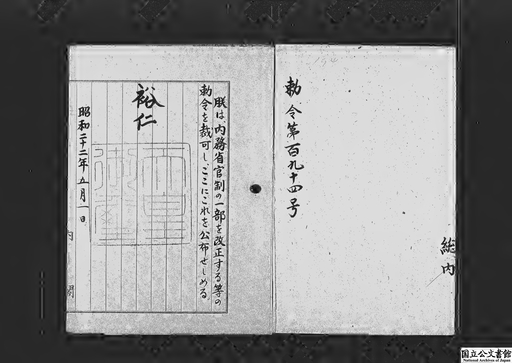 勅令第百九十四号
総内
朕は、内務省官制の一部を改正する等の
勅令を裁可し、ここにこれを公布せしめる
裕仁
昭和二十二年五月一日
内閣
国立公文書館
National Archives of Japan